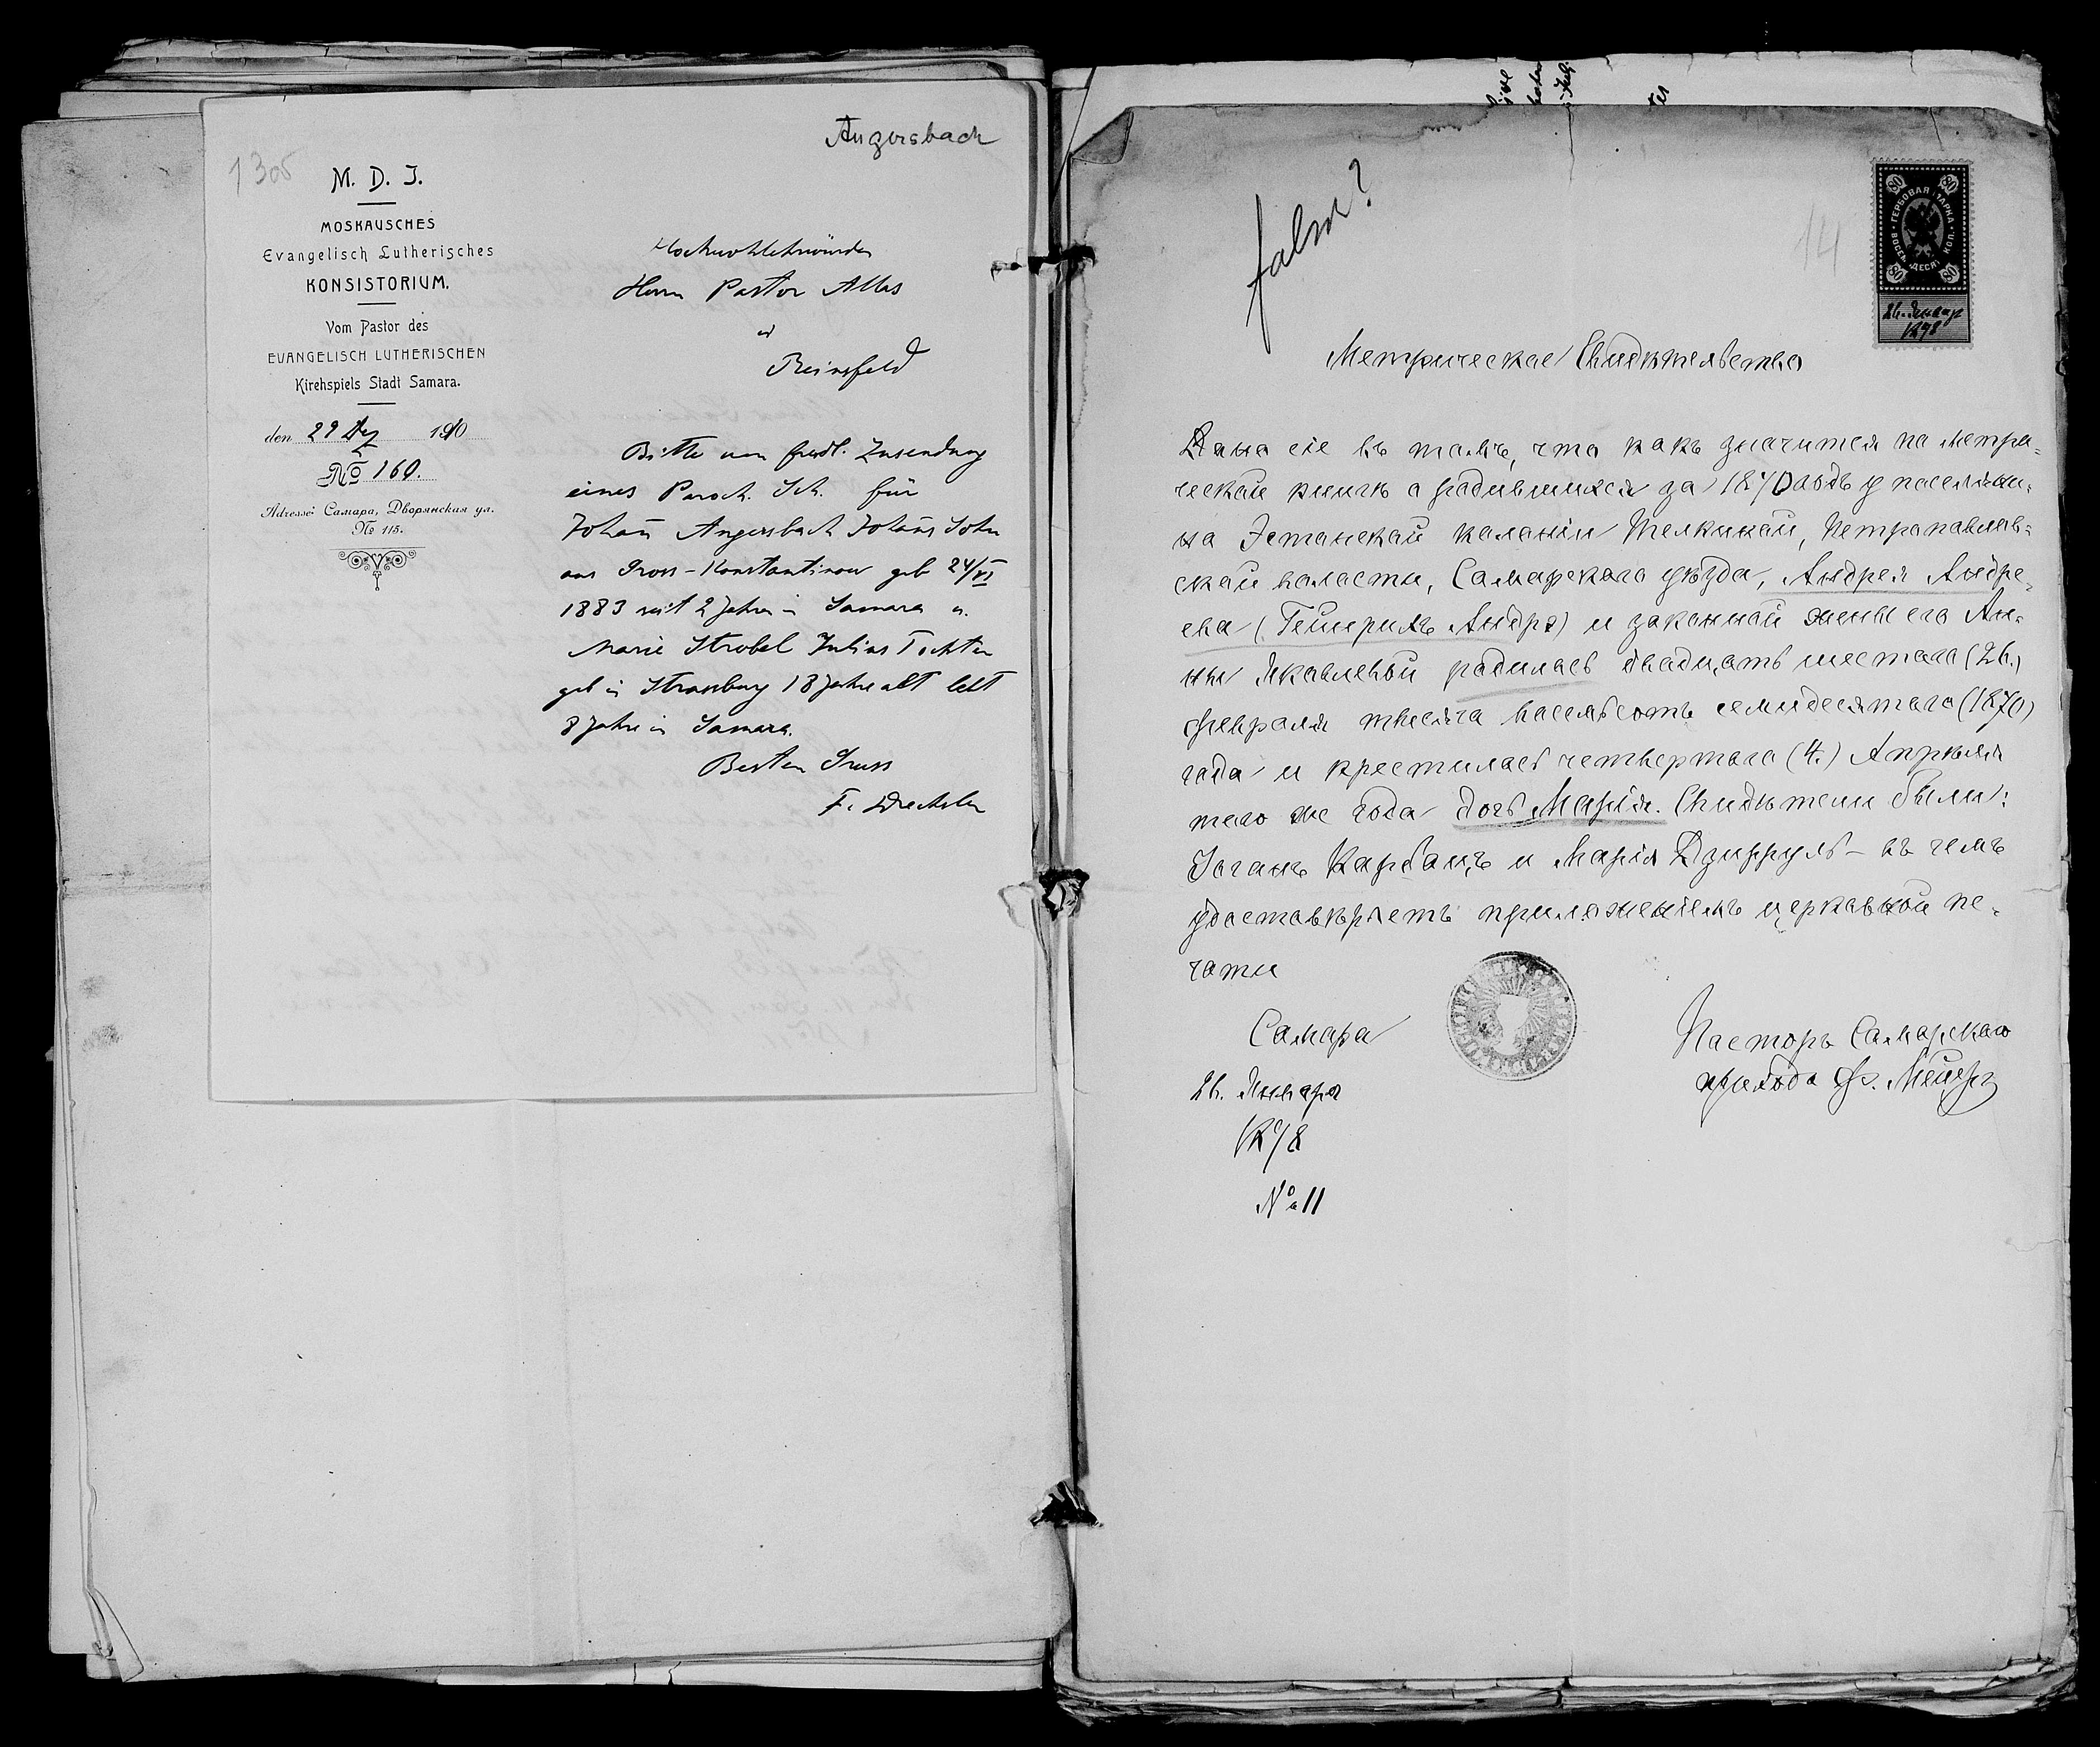 Angersbach
1305
M. D. J.
MOSKAUSCHES
Evangelisch Lutherisches
KONSISTORIUM.
Vom Pastor des
EVANGELISCH LUTHERISCHEN
Kirchspiels Stadt Samara.
den 29 Dez 1910
№ 160.
Adresse: Самара, Дворянская ул.
№ 115.
Hochwohlehrwürden
Herrn Pastor Allas
in
Reinsfeld
Bitte um frdl. Zusendung
eines Paroch. Sch. für
Johañ Angersbach Johañs Sohn
aus Gross-Konstantinow geb 24/VI
1883 seit 2 Jahren in Samara u.
Marie Strobel Julius Tochter
geb in Strassburg 18 Jahre alt lebt
8 Jahre in Samara.
Besten Gruss
falm?
14
ГЕРБОВАЯ МАРКА
ВОСЕМЬДЕСЯТ КОП.
80 80
80 80
26. Январ
1878
Метрическое Свидѣтельство
Дано сіе въ томъ, что какъ значится по метри-
ческой книгѣ о родившихся за 1870 годъ у поселяни-
на Эстонской колоніи Петропавлов-
ской волости, Самарскаго уѣзда, Андрея Андре-
ева (Гейнрихъ Андрэ) и законной жены его Ан-
ны Яковлевой родилась двадцать шестаго (26.)
Февраля тысяча восемьсотъ семидесятаго (1870)
года и крестилась четвертаго (4.) Апрѣля
того же года дочь Марія. Свидѣтели были:
Іоганъ Карбанъ и Марія – въ чемъ
удостовѣряетъ приложеніемъ церковной пе-
чати
Самара
26. Января
1878
№ 11
Пасторъ Самарскаго
прихода Ф. Мейеръ